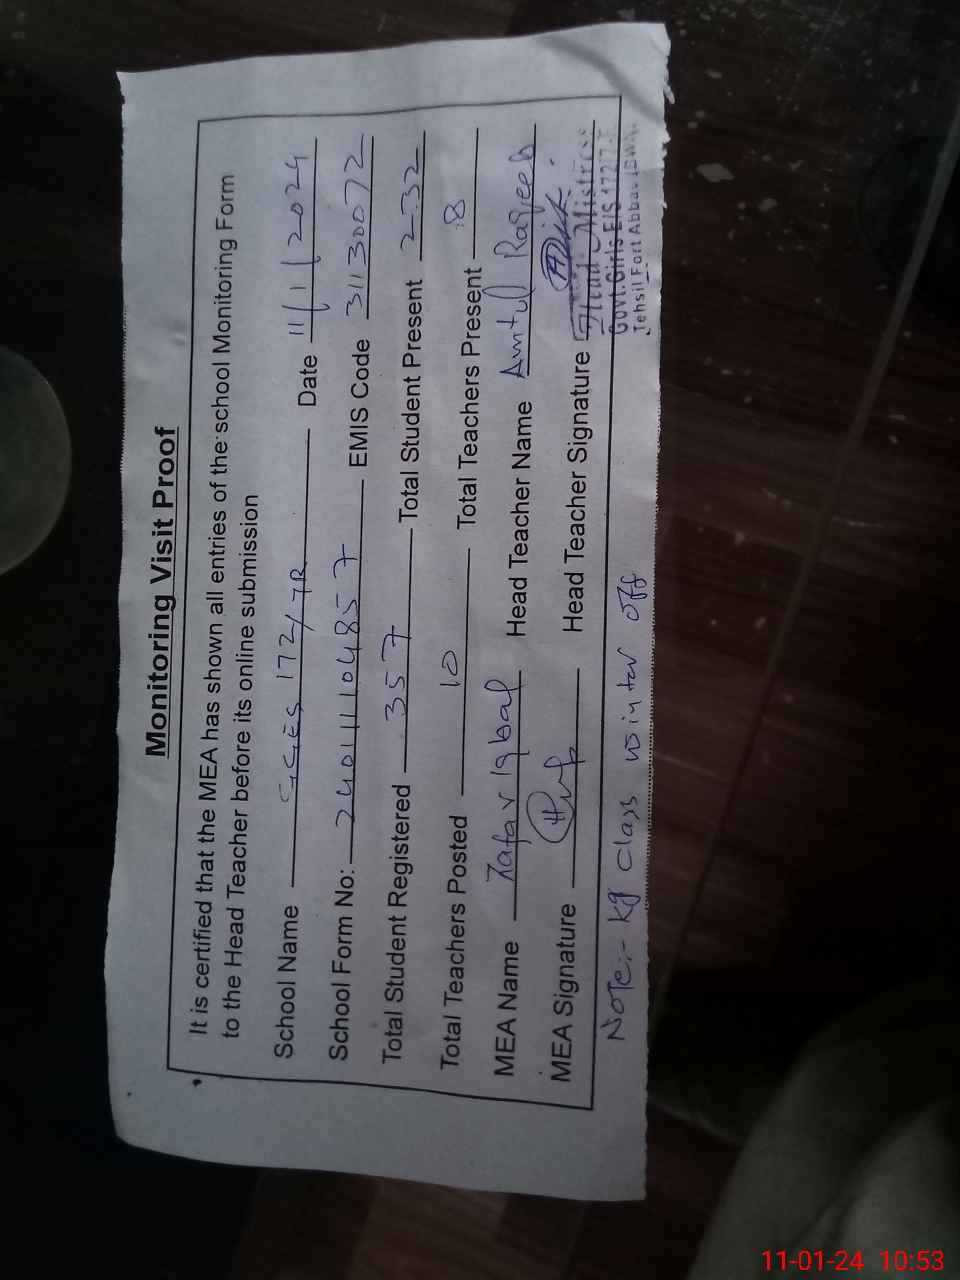 Monitoring Visit Proof
It is certified that the MEA has shown all entries of the school Monitoring Form
to the Head Teacher before its online submission
School Name GGES 172/7R Date 11/1/2024
School Form No: 2401111048577 EMIS Code 31130072
Total Student Registered 357 Total Student Present 232
Total Teachers Posted 10 Total Teachers Present 8
MEA Name Zafar Iqbal Head Teacher Name Amtul Raqeeb
MEA Signature Head Teacher Signature
Head Mistress
Govt. Girls E/S 172/7-R
Tehsil Fort Abbas
Note:- Kg class winter off
11-01-24 10:53